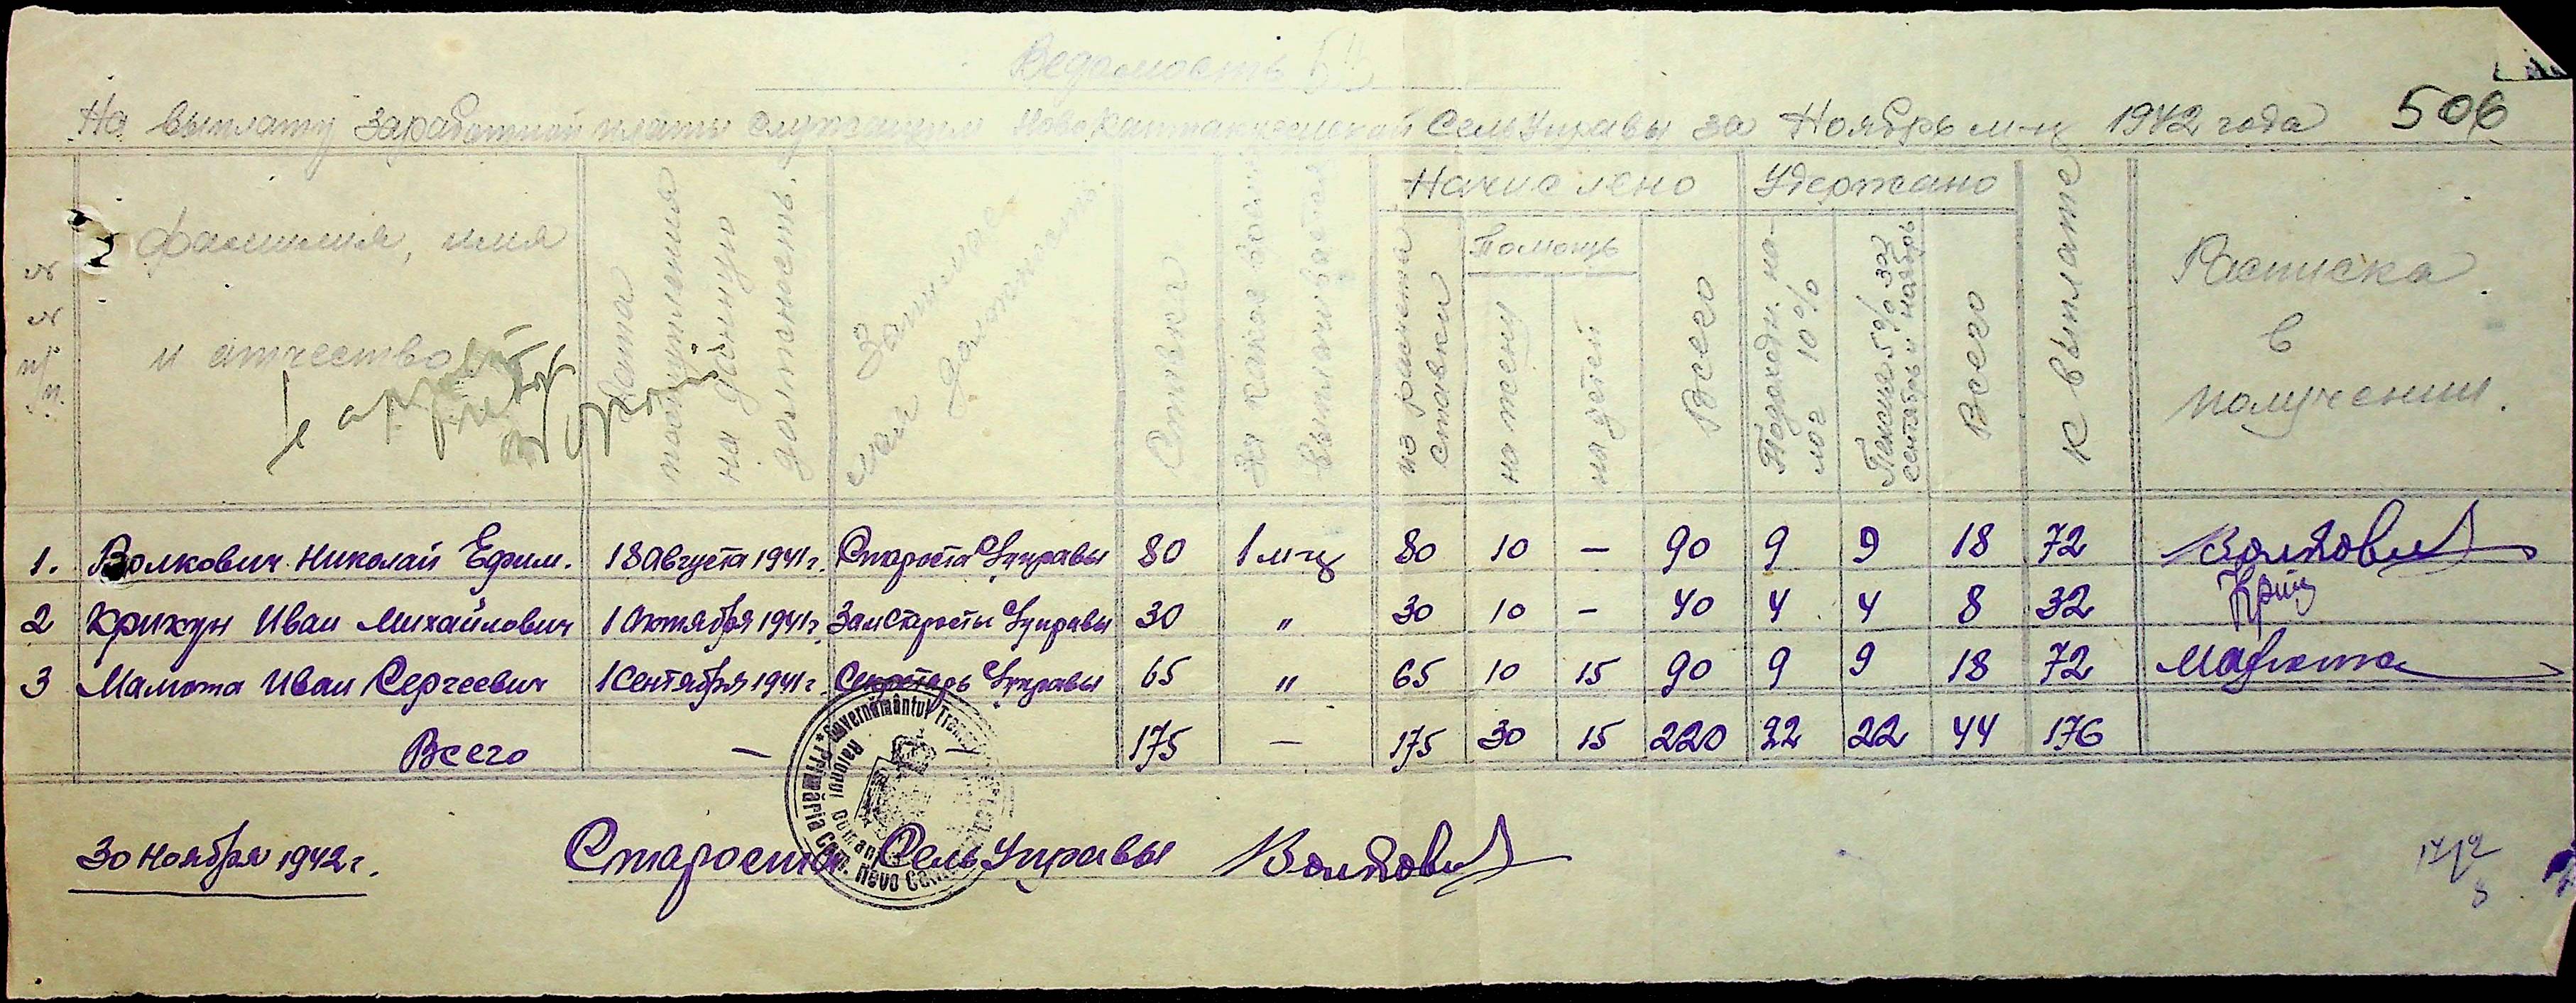 Ведомость
На выплату Заработной платы служащим СельУправы за Ноябрь м-ц 1942 года 506
№ № п/п. Фамилия, имя и отчество
Дата поступления на данную должность.
Занимаемая должность
Ставка
За какое время выплачивается
Начислено
из расчета ставки
Помощь
на жену
на детей
Всего
Удержано
Подоходн. на-
лог 10%
Пенсия 5% за
сентябрь и ноябрь
Всего
К выплате
Расписка
в
получении.
1. Волкович Николай Ефим. 18 Августа 1941 г. Староста Управы 80 1 м-ц 80 10 — 90 9 9 18 72 Волкович
2 Крикун Иван Михайлович 1 Октября 1941 г. Зам Старосты Управы 30 " 30 10 - 40 4 4 8 32
3 Мамота Иван Сергеевич 1 Сентября 1941 г. Секретарь Управы 65 " 65 10 15 90 9 9 18 72 Мамота
Всего — — 175 — 175 30 15 220 22 22 44 176
Guvernământul
Raionul
Primăria Com. Novo
30 Ноября 1942 г. Староста СельУправы Волкович